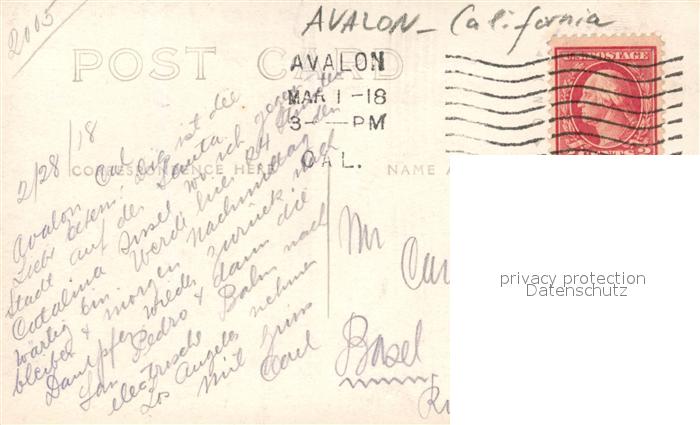 2005
AVALON - California
POST CARD
AVALON
MAR 1 - 18
3 — PM
CAL.
U.S. POSTAGE
CORRESPONDENCE HERE
NAME A
2/28/18
Avalon Cal.
Liebe Eltern: Dies ist die
Stadt auf der Santa
Catalina Insel wo ich gegen-
wärtig bin. Werde hier 24 Stunden
bleiben & morgen Nachmittag den
Dampfer wieder zurück nach
San Pedro & dann die
electrische Bahn nach
Los Angeles nehmen
Mit Gruss
Carl
Mr Car
Basel
privacy protection
Datenschutz